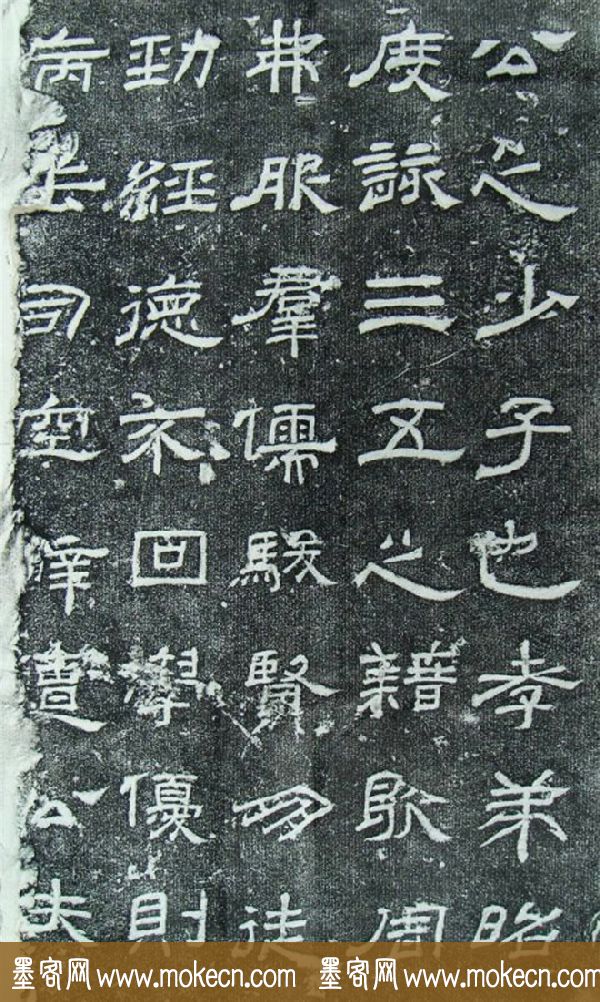 公之少子也孝弟昭
度詠三五之籍周
弗服羣儒駿賢徒
勁經德不回學優則
病去司空辟遭公夫
墨客网 www.mokecn.com 墨客网 www.mokecn.com